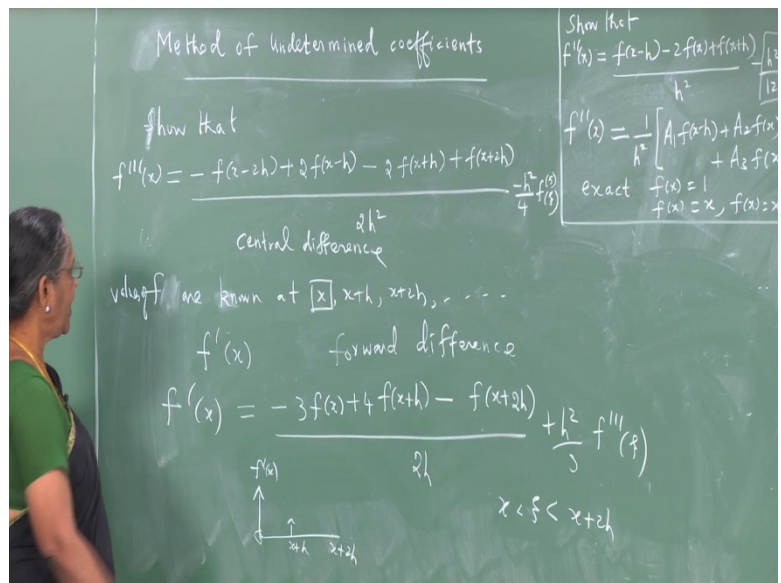 Method of undetermined coefficients
Show that
f'''(x) = -f(x-2h)+2f(x-h)-2f(x+h)+f(x+2h) / 2h² -h²/4 f⁽⁵⁾(ξ)
central difference
values of f are known at x, x+h, x+2h, .....
f'(x) forward difference
f'(x) = -3f(x)+4f(x+h)-f(x+2h) / 2h +h²/3 f'''(ξ)
f'(x)
x+h x+2h
x<ξ<x+2h
Show that
f''(x) = f(x-h)-2f(x)+f(x+h) / h² - h²/12
f''(x) = 1/h² [A₁f(x-h)+A₂f(x)
+A₃f(x
exact f(x)=1
f(x)=x, f(x)=x